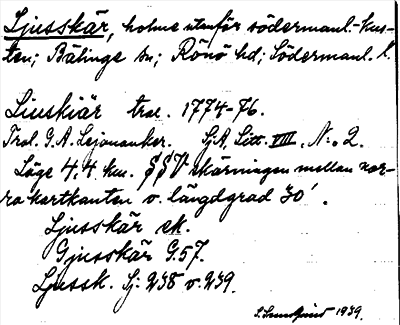 Ljusskär, holme utanför södermanl.-kus-
ten; Bälinge sn; Rönö hd; Södermanl. l.
Liuskiär trol. 1774-76.
Trol. G.A. Lejonanker. Sj.A. Litt. VIII, N:o 2.
Läge 4,4 km. SSV skärningen mellan nor-
ra kartkanten o. längdgrad 30'.
Ljusskär ek.
Gjusskär G.57.
Ljussk. Sj: 238 o. 239.
1939.